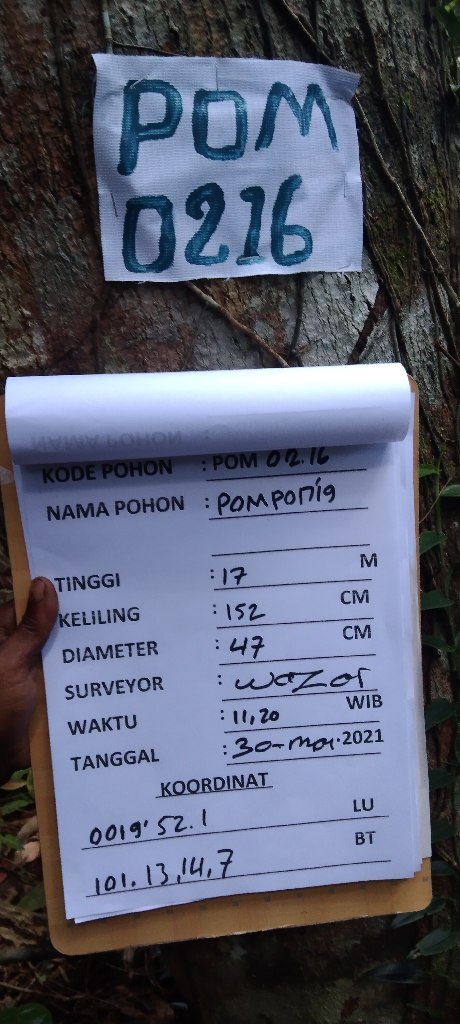 POM
0216
NAMA POHON :
KODE POHON : POM 02.16
NAMA POHON : POMPONIA
TINGGI : 17 M
KELILING : 152 CM
DIAMETER : 47 CM
SURVEYOR :
WAKTU : 11,20 WIB
TANGGAL : 30-mei-2021
KOORDINAT
0019'52.1 LU
101.13,14,7 BT